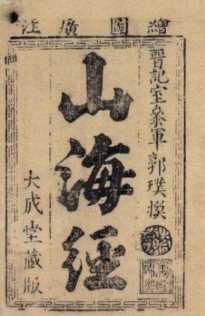 繪圖廣注
晉記室叅軍郭璞撰
山海經
大成堂藏版